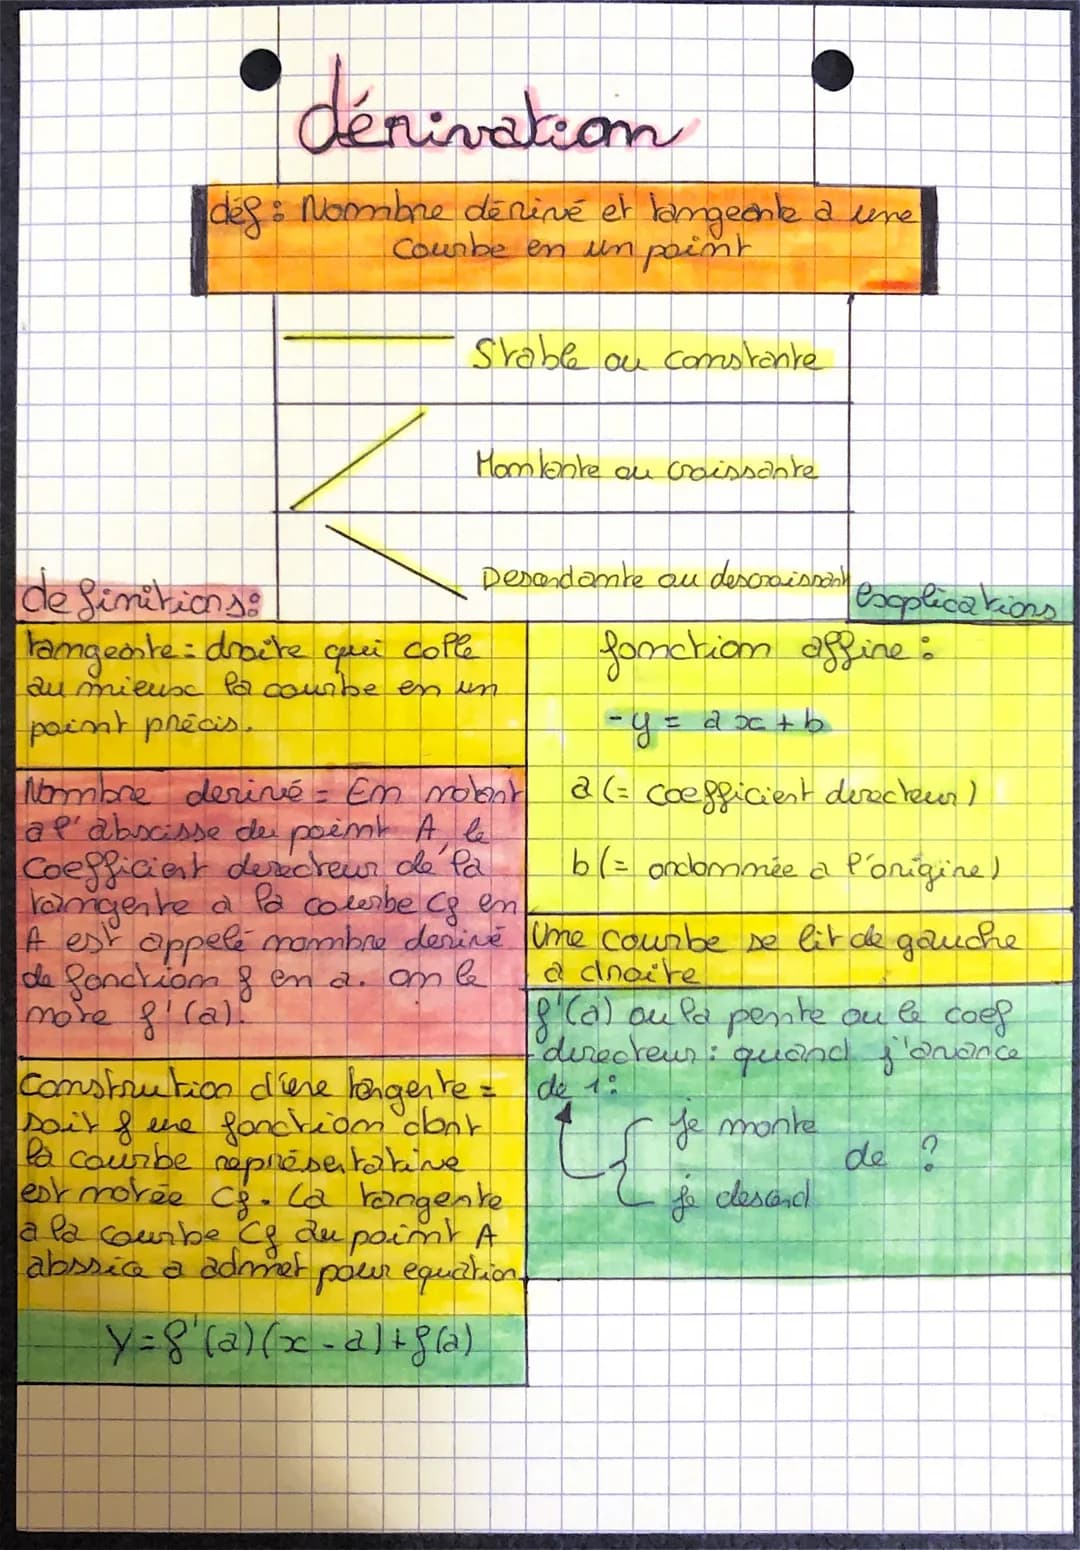 dérivation
déf : Nombre dérivé et tangeante a une
courbe en un point
Stable ou constante
Montante ou croissante
Descendante ou descroissant
definitions:
tangeante = droite qui colle
au mieux la courbe en un
point précis.
Nombre derivé = En notant
a l'abscisse du point A, le
coefficient derecteur de la
tangente a la courbe Cf en
A est appelé nombre derivé
de fonction f en a. on le
note f'(a).
Constrution d'une tangente =
soit f une fonction dont
la courbe représentative
est notée Cf. La tangente
a la courbe Cf au point A
abssice a admet pour equation
y=f'(a)(x-a)+f(a)
explications
fonction affine :
-y = ax+b
a (= coefficient derecteur)
b (= ordonnée a l'origine)
Une courbe se lit de gauche
a droite
f'(a) ou la pente ou le coef
directeur : quand j'avance
de 1:
je monte
de ?
je descend